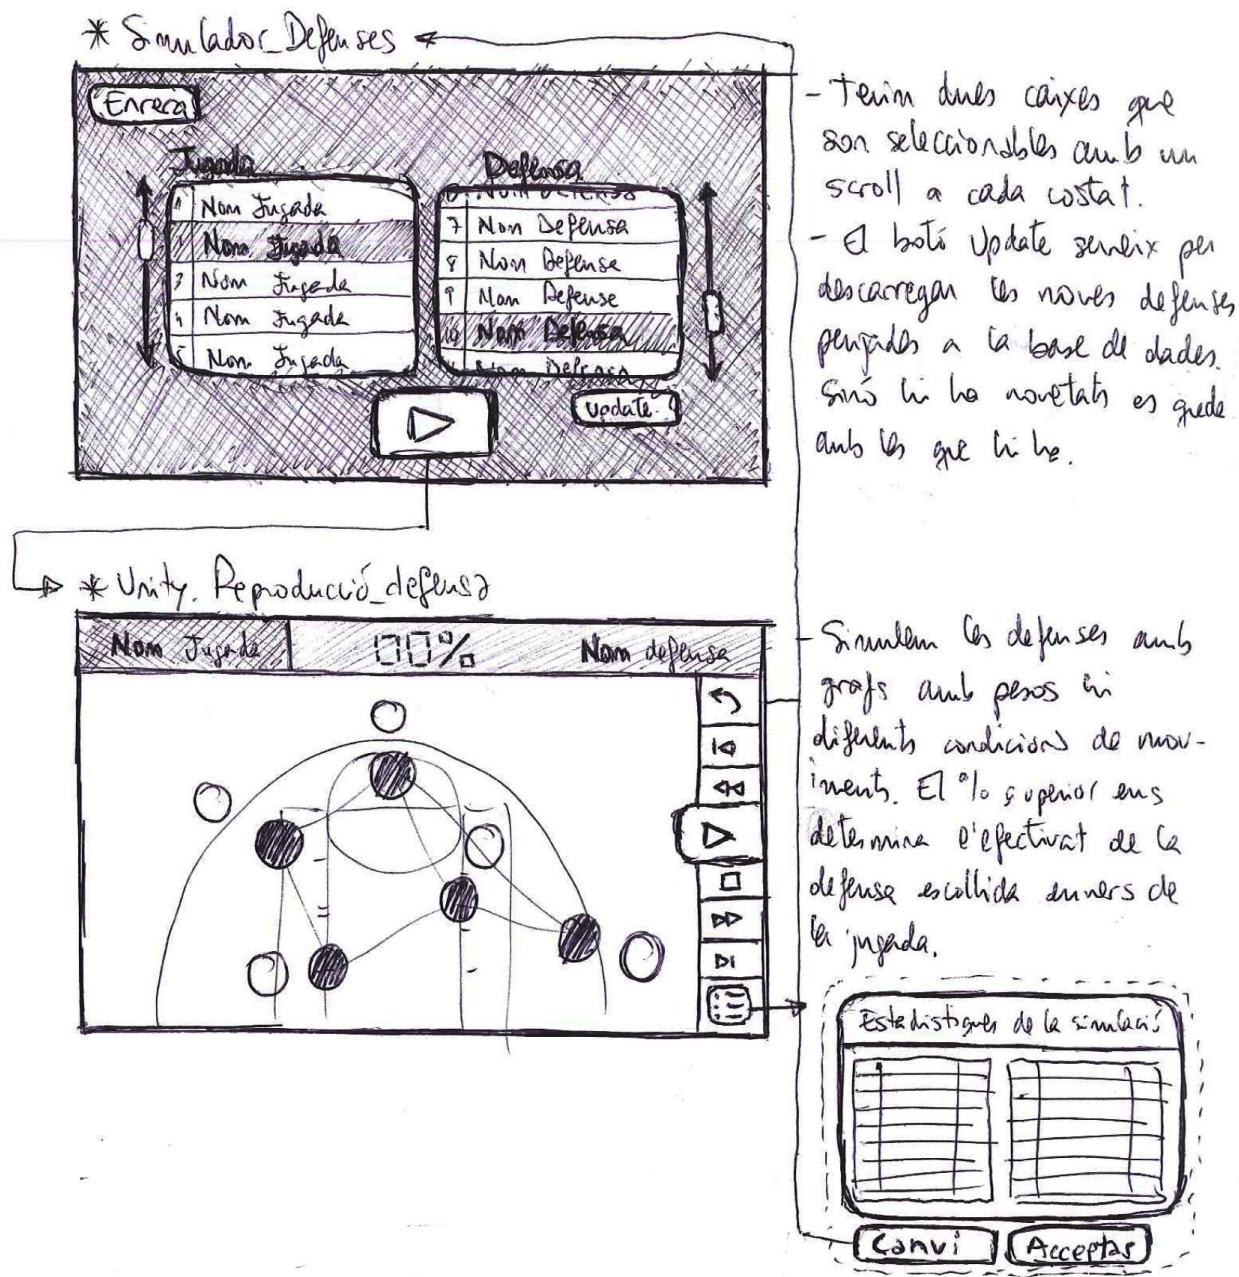 * Simulador_Defenses
Enrera
Jugada
1 Nom Jugada
Nom Jugada
3 Nom Jugada
4 Nom Jugada
5 Nom Jugada
Defensa
7 Nom Defensa
8 Nom Defense
9 Nom Defense
10 Nom Defensa
Nom Defensa
Update
- Tenim dues caixes que
son seleccionables amb un
scroll a cada costat.
- El botó Update serveix per
descarregar les noves defenses
penjades a la base de dades.
Sinó hi ha novetats es queda
amb les que hi ha.
* Unity. Reproducció_defensa
Nom Jugada
100%
Nom defensa
- Simulem les defenses amb
grafs amb pesos i
diferents condicions de mov-
iments. El % superior ens
determina l'efectivat de la
defensa escollida envers de
la jugada.
Estadistiques de la simulació
Canvi
Acceptar